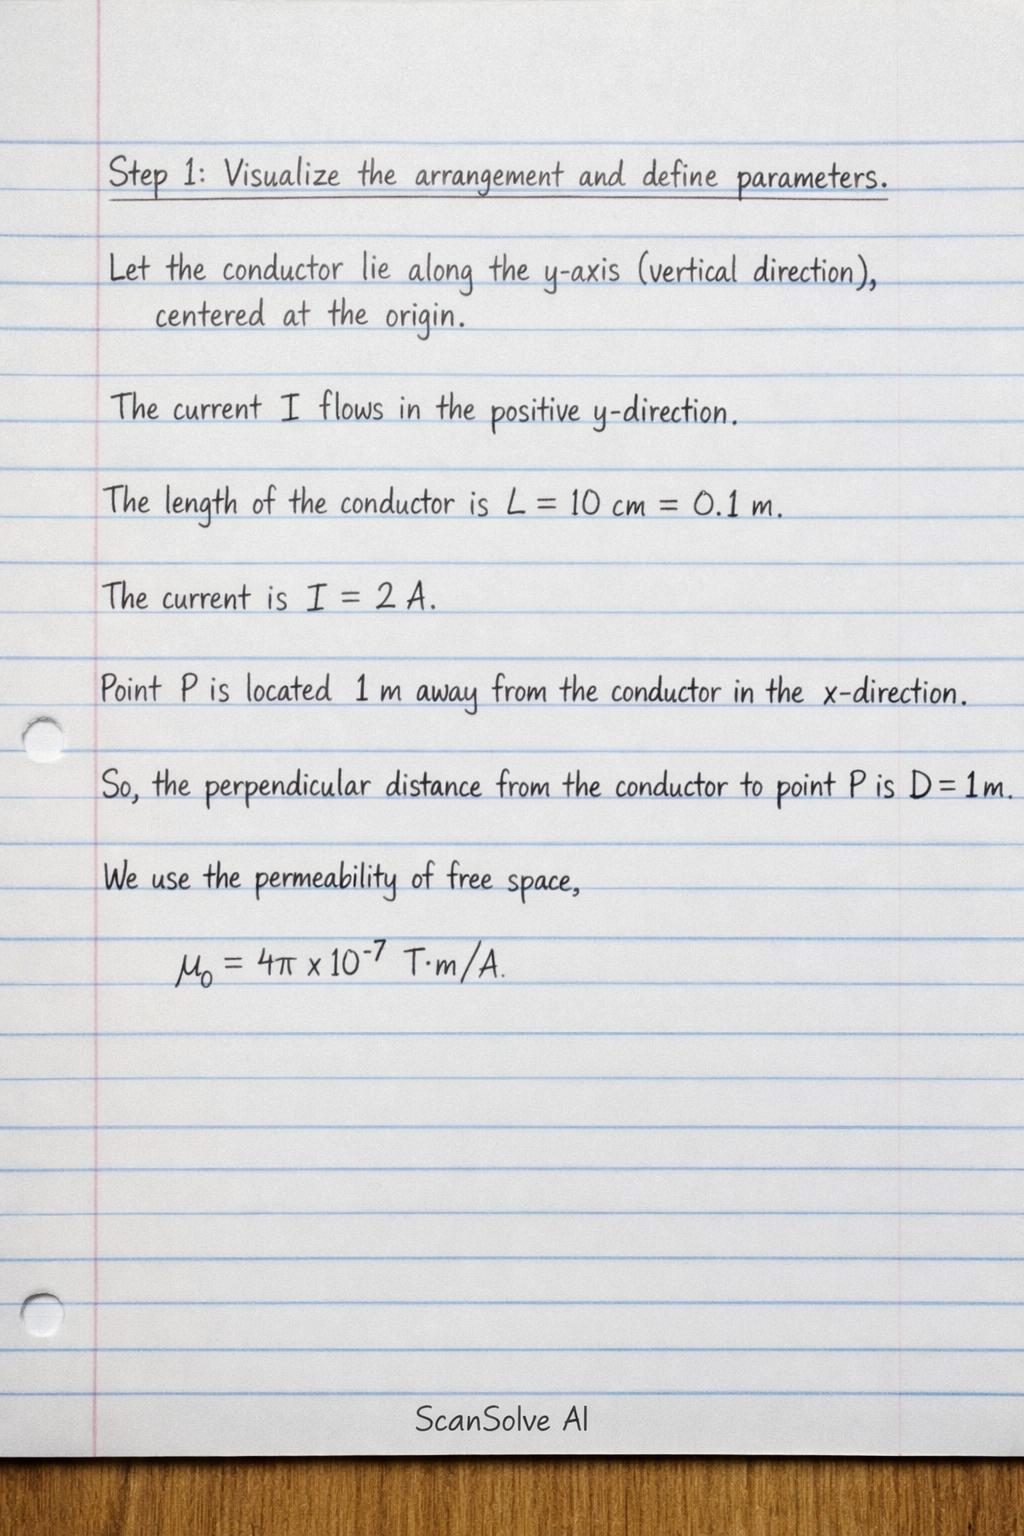 Step 1: Visualize the arrangement and define parameters.
Let the conductor lie along the y-axis (vertical direction),
centered at the origin.
The current I flows in the positive y-direction.
The length of the conductor is L = 10 cm = 0.1 m.
The current is I = 2 A.
Point P is located 1 m away from the conductor in the x-direction.
So, the perpendicular distance from the conductor to point P is D = 1 m.
We use the permeability of free space,
μ₀ = 4π × 10⁻⁷ T·m/A.
ScanSolve AI